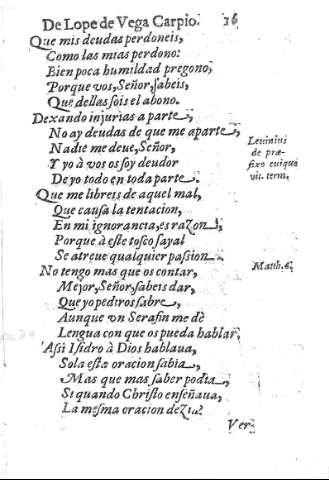 De Lope de Vega Carpio. 36
Que mis deudas perdoneis,
Como las mias perdono:
Bien poca humildad pregono,
Porque vos, Señor, sabeis,
Que dellas sois el abono.
Dexando injurias a parte,
No ay deudas de que me aparte,
Nadie me deue, Señor,
Y yo à vos os soy deudor
De yo todo en toda parte.
Leuinius
de præ-
fixo cuiquā
vit. term.
Que me libreis de aquel mal,
Que causa la tentacion,
En mi ignorancia, es razon
Porque à este tosco sayal
Se atreue qualquier passion.
No tengo mas que os contar,
Matth. 6.
Mejor, Señor, sabeis dar,
Que yo pediros sabre,
Aunque vn Serafin me dè
Lengua con que os pueda hablar.
Assi Isidro à Dios hablaua,
Sola esta oracion sabia,
Mas que mas saber podia,
Si quando Christo enseñaua,
La mesma oracion dezia?
Ver